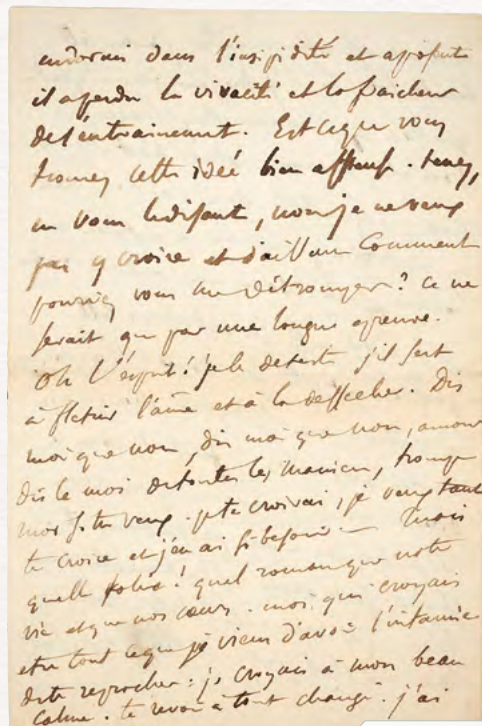 endormi dans l'insipidité et
il a perdu la vivacité et la fraicheur
de l'entrainement. Est ce que vous
trouvez cette ideé bien affreuse. tenez,
en vous le disant, non je ne veux
pas y croire et d'ailleurs Comment
pourriez vous me détromper? Ce ne
serait que par une longue epreuve.
Oh l'esprit! je le deteste s'il sert
à fletrir l'âme et à la dessecher. Dis
moi que non, dis moi que non, amour
dis le moi de toutes les manieres, trompe
moi si tu veux. je te croirai, je veux tant
te croire et j'en ai si besoin — mais
quelle folie! quel roman que notre
vie et que nos cœurs. moi qui croyais
etre tout ce que je viens d'avoir l'infamie
de te reprocher: je croyais à mon beau
Calme. te revoir à tout changé. j'ai